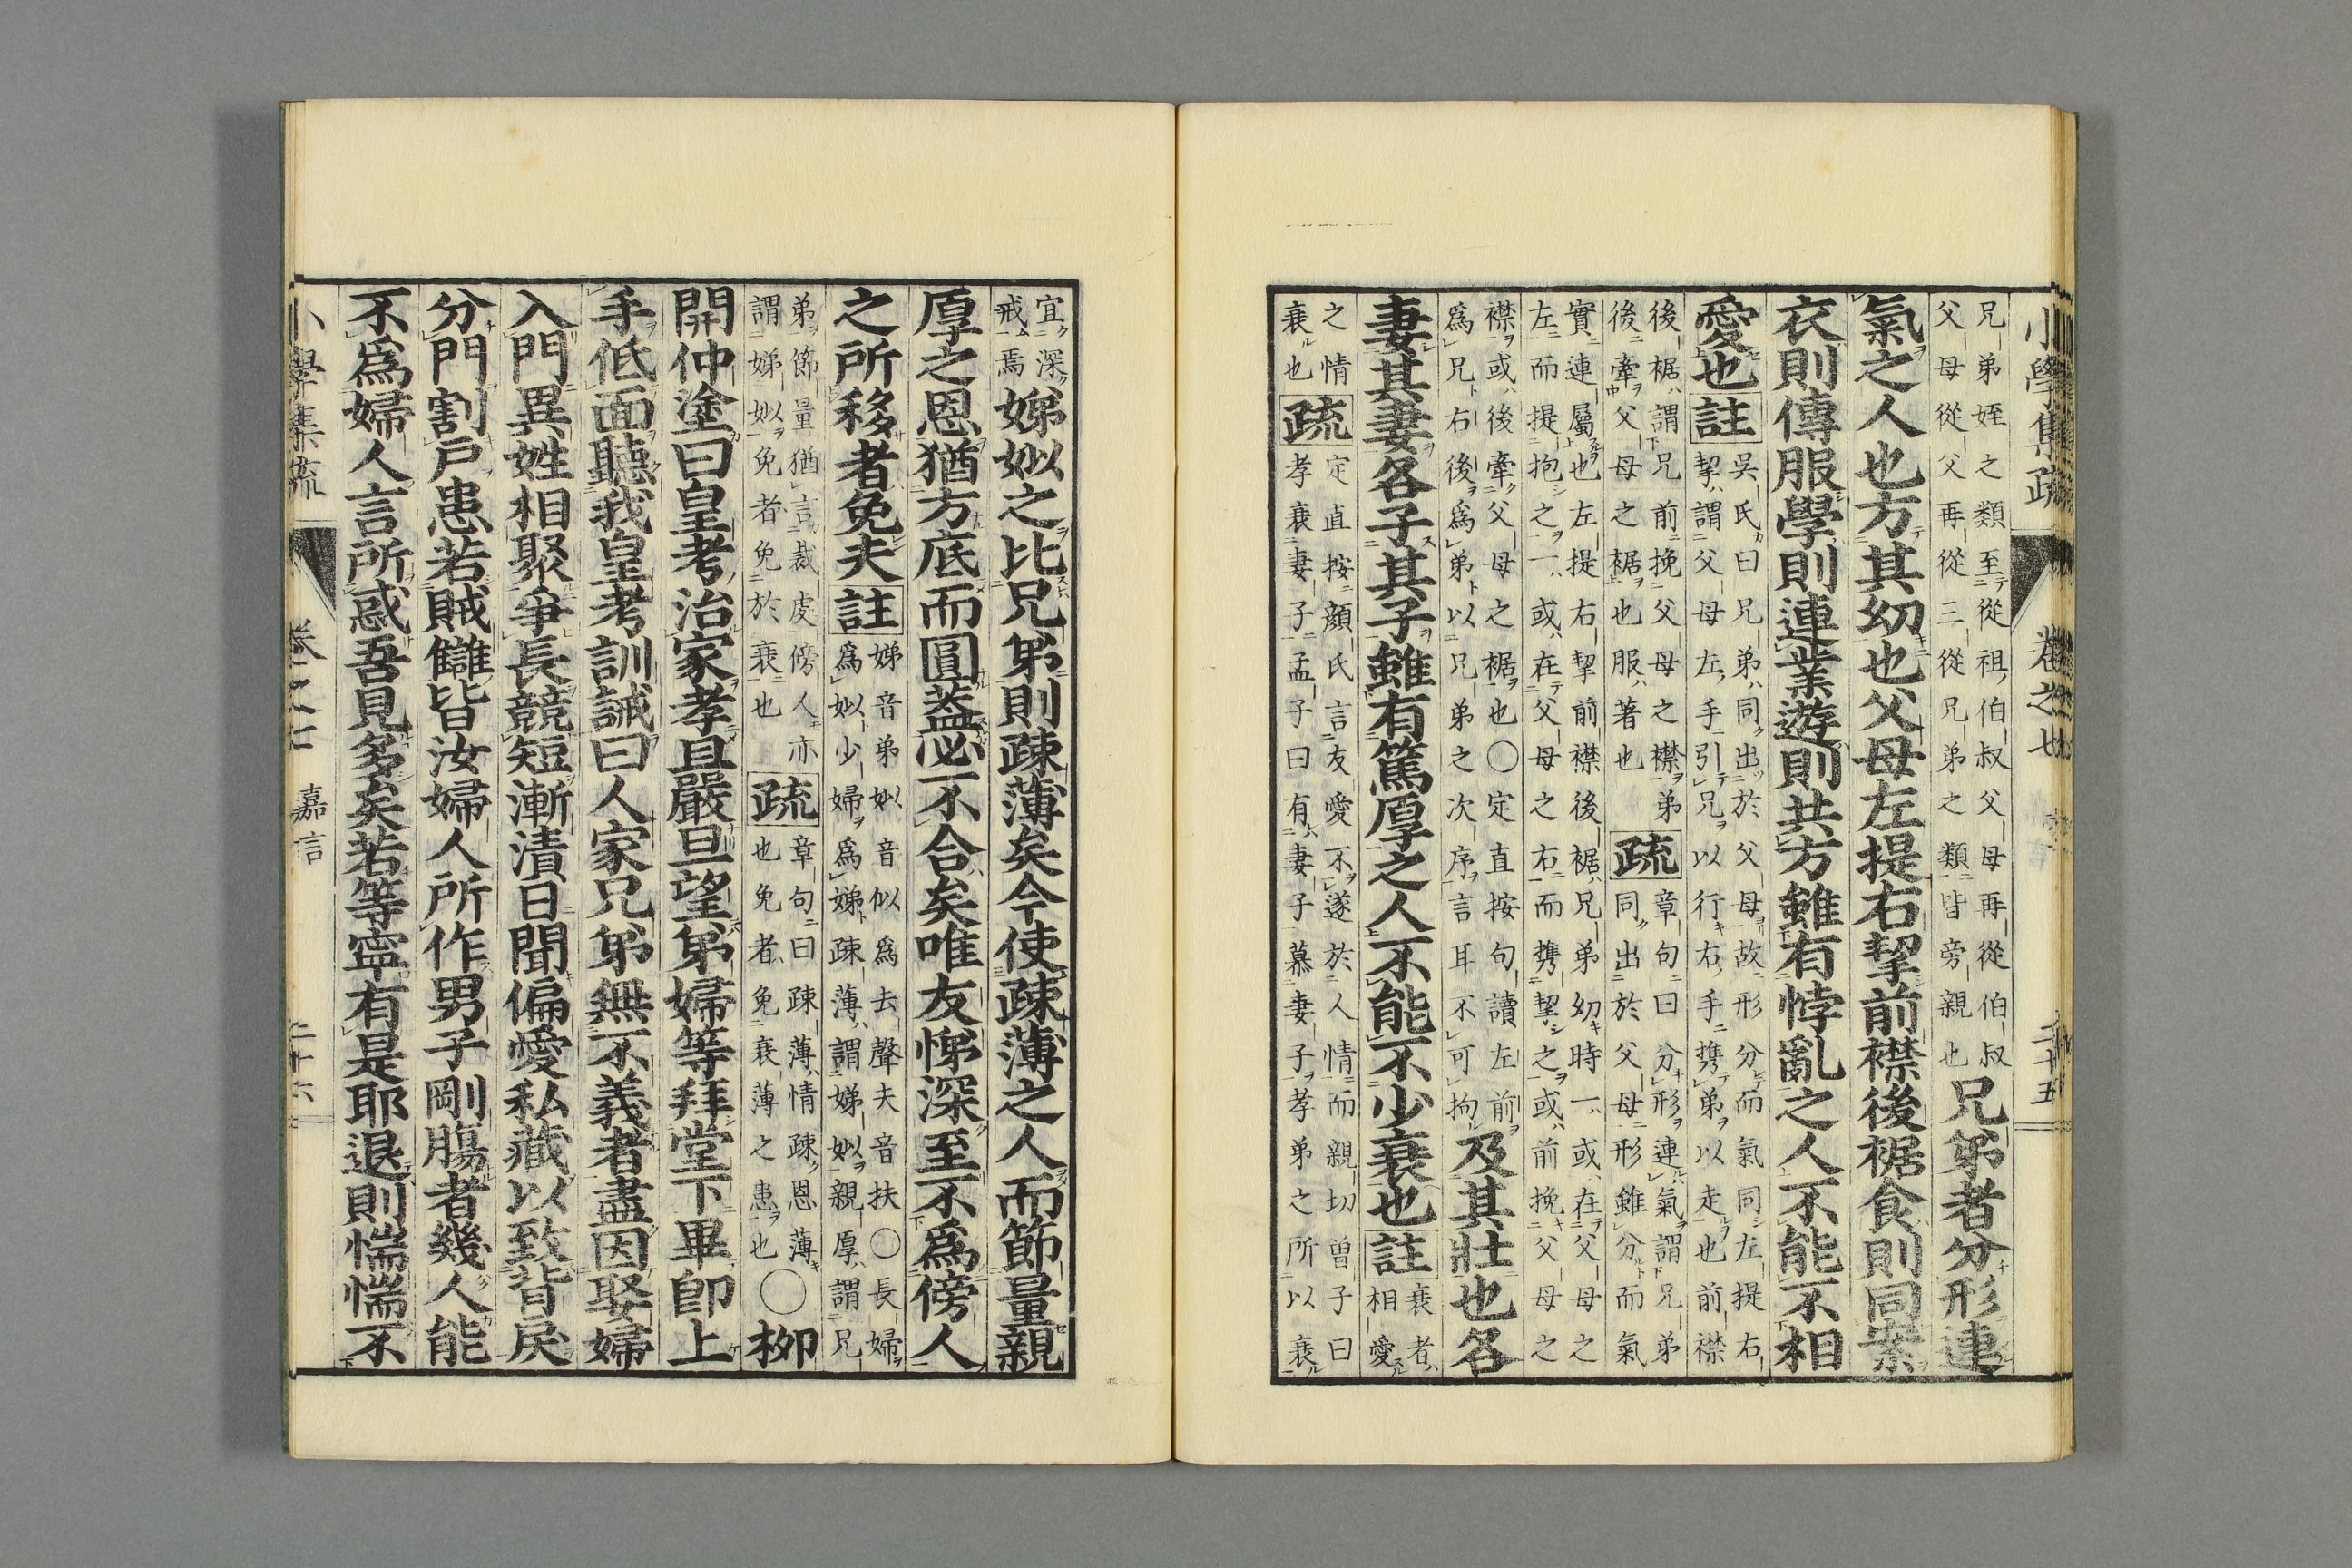 小學集疏 卷之七 二十五
兄弟姪之類至從祖伯叔父母再從伯叔
父母從父再從三從兄弟之類皆旁親也兄弟者分形連
氣之人也方其幼也父母左提右挈前襟後裾食則同案
衣則傳服學則連業遊則共方雖有悖亂之人不能不相
愛也註吳氏曰兄弟同出於父母故形分而氣同左提右
挈謂父母左手引兄以行右手攜弟以走也前襟
後裾謂兄前挽父母之襟弟
後牽父母之裾也服著也疏章句曰分形連氣謂兄弟
同出於父母形雖分而氣
實連屬也左提右挈前襟後裾兄弟幼時一或在父母之
左而提抱之一或在父母之右而攜挈之或前挽父母之
襟或後牽父母之裾也○定直按句讀左前
爲兄右後爲弟以兄弟之次序言耳不可拘及其壯也各
妻其妻各子其子雖有篤厚之人不能不少衰也註衰者
相愛
之情
衰也疏定直按顏氏言友愛不遂於人情而親切曾子曰
孝衰妻子孟子曰有妻子慕妻子孝弟之所以衰
宜深
戒焉娣姒之比兄弟則疎薄矣今使疎薄之人而節量親
厚之恩猶方底而圓蓋必不合矣唯友悌深至不爲傍人
之所移者免夫註娣音弟姒音似爲去聲夫音扶○長婦
爲姒少婦爲娣疎薄謂娣姒親厚謂兄
弟節量猶言裁處傍人亦
謂娣姒免者免於衰也疏章句曰疎薄情疎恩薄
也免者免衰薄之患也○栁
開仲塗曰皇考治家孝且嚴旦望弟婦等拜堂下畢卽上
手低面聽我皇考訓誡曰人家兄弟無不義者盡因娶婦
入門異姓相聚爭長競短漸漬日聞偏愛私藏以致背戾
分門割戶患若賊讎皆汝婦人所作男子剛膓者幾人能
不爲婦人言所惑吾見多矣若等寧有是耶退則惴惴不
小學集疏 卷之七 嘉言 二十六